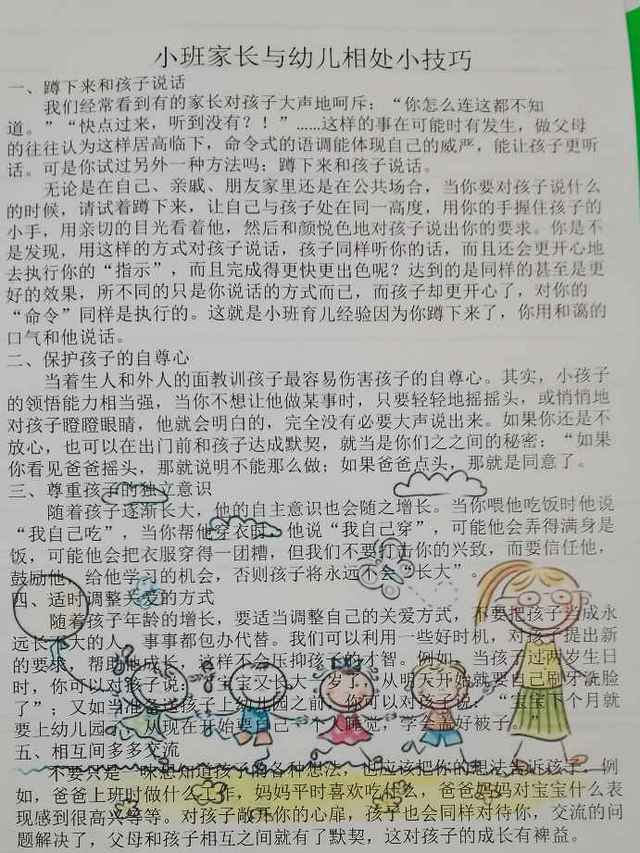 小班家长与幼儿相处小技巧
一、蹲下来和孩子说话
我们经常看到有的家长对孩子大声地呵斥：“你怎么连这都不知
道。”“快点过来，听到没有？！”……这样的事在可能时有发生，做父母
的往往认为这样居高临下，命令式的语调能体现自己的威严，能让孩子更听
话。可是你试过另外一种方法吗：蹲下来和孩子说话。
无论是在自己、亲戚、朋友家里还是在公共场合，当你要对孩子说什么
的时候，请试着蹲下来，让自己与孩子处在同一高度，用你的手握住孩子的
小手，用亲切的目光看着他，然后和颜悦色地对孩子说出你的要求。你是不
是发现，用这样的方式对孩子说话，孩子同样听你的话，而且还会更开心地
去执行你的“指示”，而且完成得更快更出色呢？达到的是同样的甚至是更
好的效果，所不同的只是你说话的方式而已，而孩子却更开心了，对你的
“命令”同样是执行的。这就是小班育儿经验因为你蹲下来了，你用和蔼的
口气和他说话。
二、保护孩子的自尊心
当着生人和外人的面教训孩子最容易伤害孩子的自尊心。其实，小孩子
的领悟能力相当强，当你不想让他做某事时，只要轻轻地摇摇头，或悄悄地
对孩子瞪瞪眼睛，他就会明白的，完全没有必要大声说出来。如果你还是不
放心，也可以在出门前和孩子达成默契，就当是你们之之间的秘密：“如果
你看见爸爸摇头，那就说明不能那么做；如果爸爸点头，那就是同意了。
三、尊重孩子的独立意识
随着孩子逐渐长大，他的自主意识也会随之增长。当你喂他吃饭时他说
“我自己吃”，当你帮他穿衣时，他说“我自己穿”，可能他会弄得满身是
饭，可能他会把衣服穿得一团糟，但我们不要打击你的兴致，而要信任他，
鼓励他，给他学习的机会，否则孩子将永远不会“长大”。
四、适时调整关爱的方式
随着孩子年龄的增长，要适当调整自己的关爱方式，不要把孩子当成永
远长不大的人，事事都包办代替。我们可以利用一些好时机，对孩子提出新
的要求，帮助他成长，这样不会压抑孩子的才智。例如，当孩子过两岁生日
时，你可以对孩子说：“宝宝又长大一岁了，从明天开始就要自己刷牙洗脸
了”；又如当准备送孩子上幼儿园之前，你可以对孩子说：“宝宝下个月就
要上幼儿园了，从现在开始要自己一个人睡觉，学会盖好被子。”
五、相互间多多交流
不要只是一味想知道孩子的各种想法，也应该把你的想法告诉孩子，例
如，爸爸上班时做什么工作，妈妈平时喜欢吃什么，爸爸妈妈对宝宝什么表
现感到很高兴等等。对孩子敞开你的心扉，孩子也会同样对待你，交流的问
题解决了，父母和孩子相互之间就有了默契，这对孩子的成长有裨益。